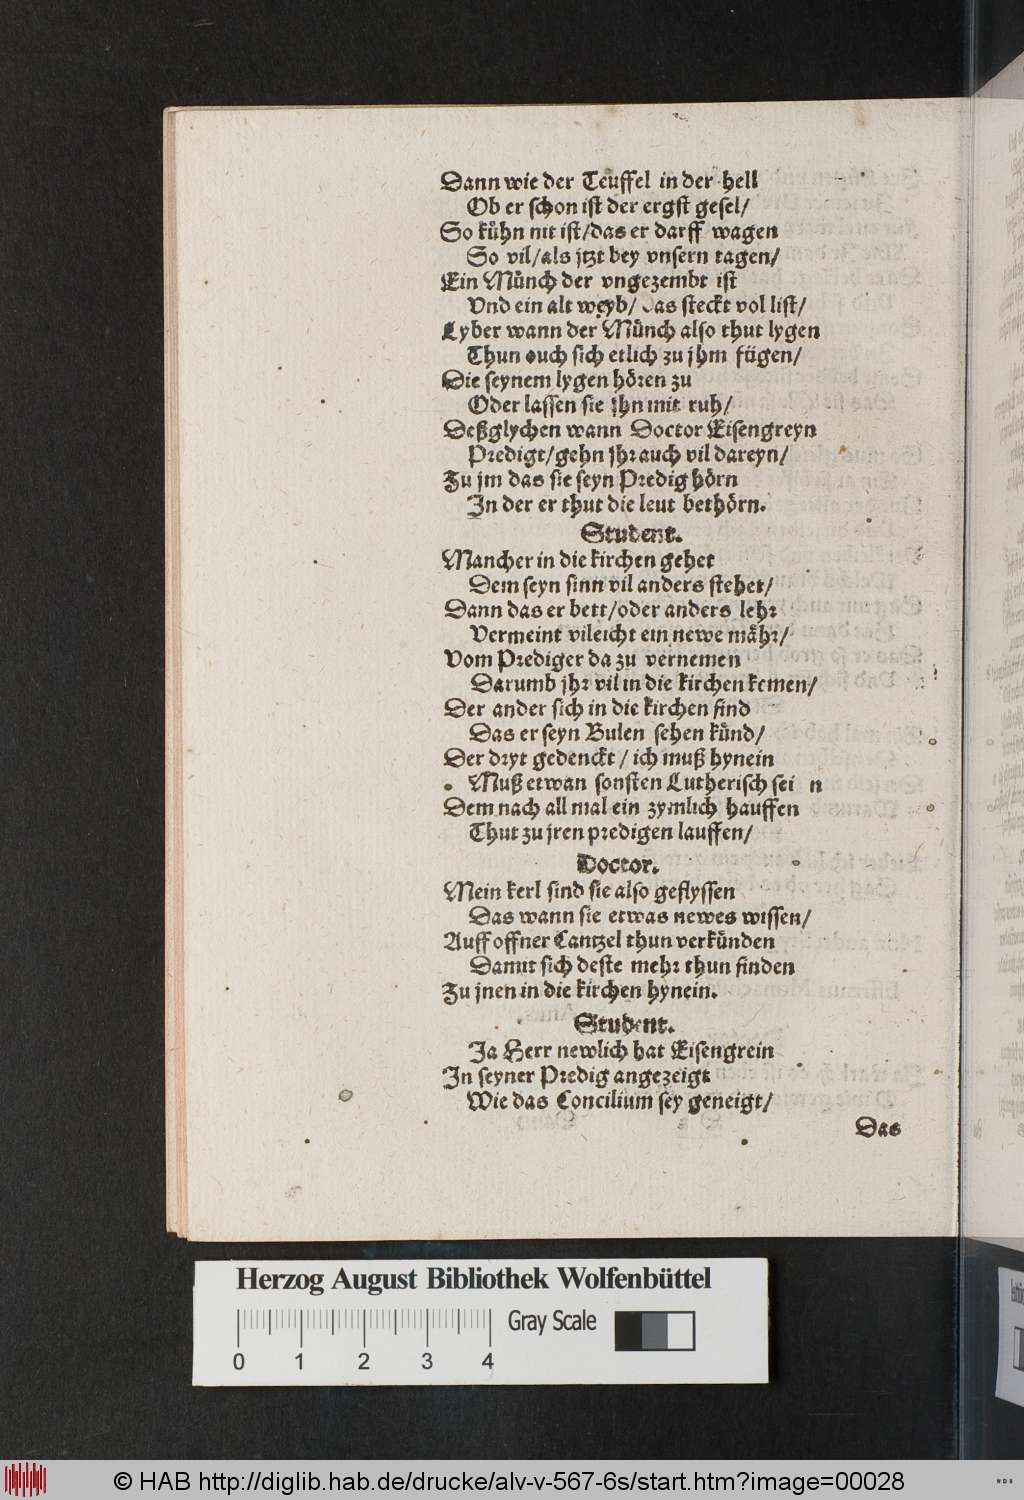 Dann wie der Teuffel in der hell
Ob er schon ist der ergst gesel/
So kühn nit ist/das er darff wagen
So vil/als jtzt bey vnsern tagen/
Ein Münch der vngezembt ist
Vnd ein alt weyb/ das steckt vol list/
Lyber wann der Münch also thut lygen
Thun auch sich etlich zu jhm fügen/
Die seynem lygen hören zu
Oder lassen sie jhn mit ruh/
Deßglychen wann Doctor Eisengreyn
Predigt/gehn jhr auch vil dareyn/
Zu jm das sie seyn Predig hörn
In der er thut die leut bethörn.
Student.
Mancher in die kirchen gehet
Dem seyn sinn vil anders stehet/
Dann das er bett/oder anders lehr
Vermeint vileicht ein newe mähr/
Vom Prediger da zu vernemen
Darumb jhr vil in die kirchen kemen/
Der ander sich in die kirchen find
Das er seyn Bulen sehen künd/
Der dryt gedenckt / ich muß hynein
Muß etwan sonsten Lutherisch sei n
Dem nach all mal ein zymlich hauffen
Thut zu jren predigen lauffen/
Doctor.
Mein kerl sind sie also geflyssen
Das wann sie etwas newes wissen/
Auff offner Cantzel thun verkünden
Damit sich deste mehr thun finden
Zu jnen in die kirchen hynein.
Student.
Ja Herr newlich hat Eisengrein
In seyner Predig angezeigt
Wie das Concilium sey geneigt/
Das
Herzog August Bibliothek Wolfenbüttel
Gray Scale
0 1 2 3 4
© HAB http://diglib.hab.de/drucke/alv-v-567-6s/start.htm?image=00028